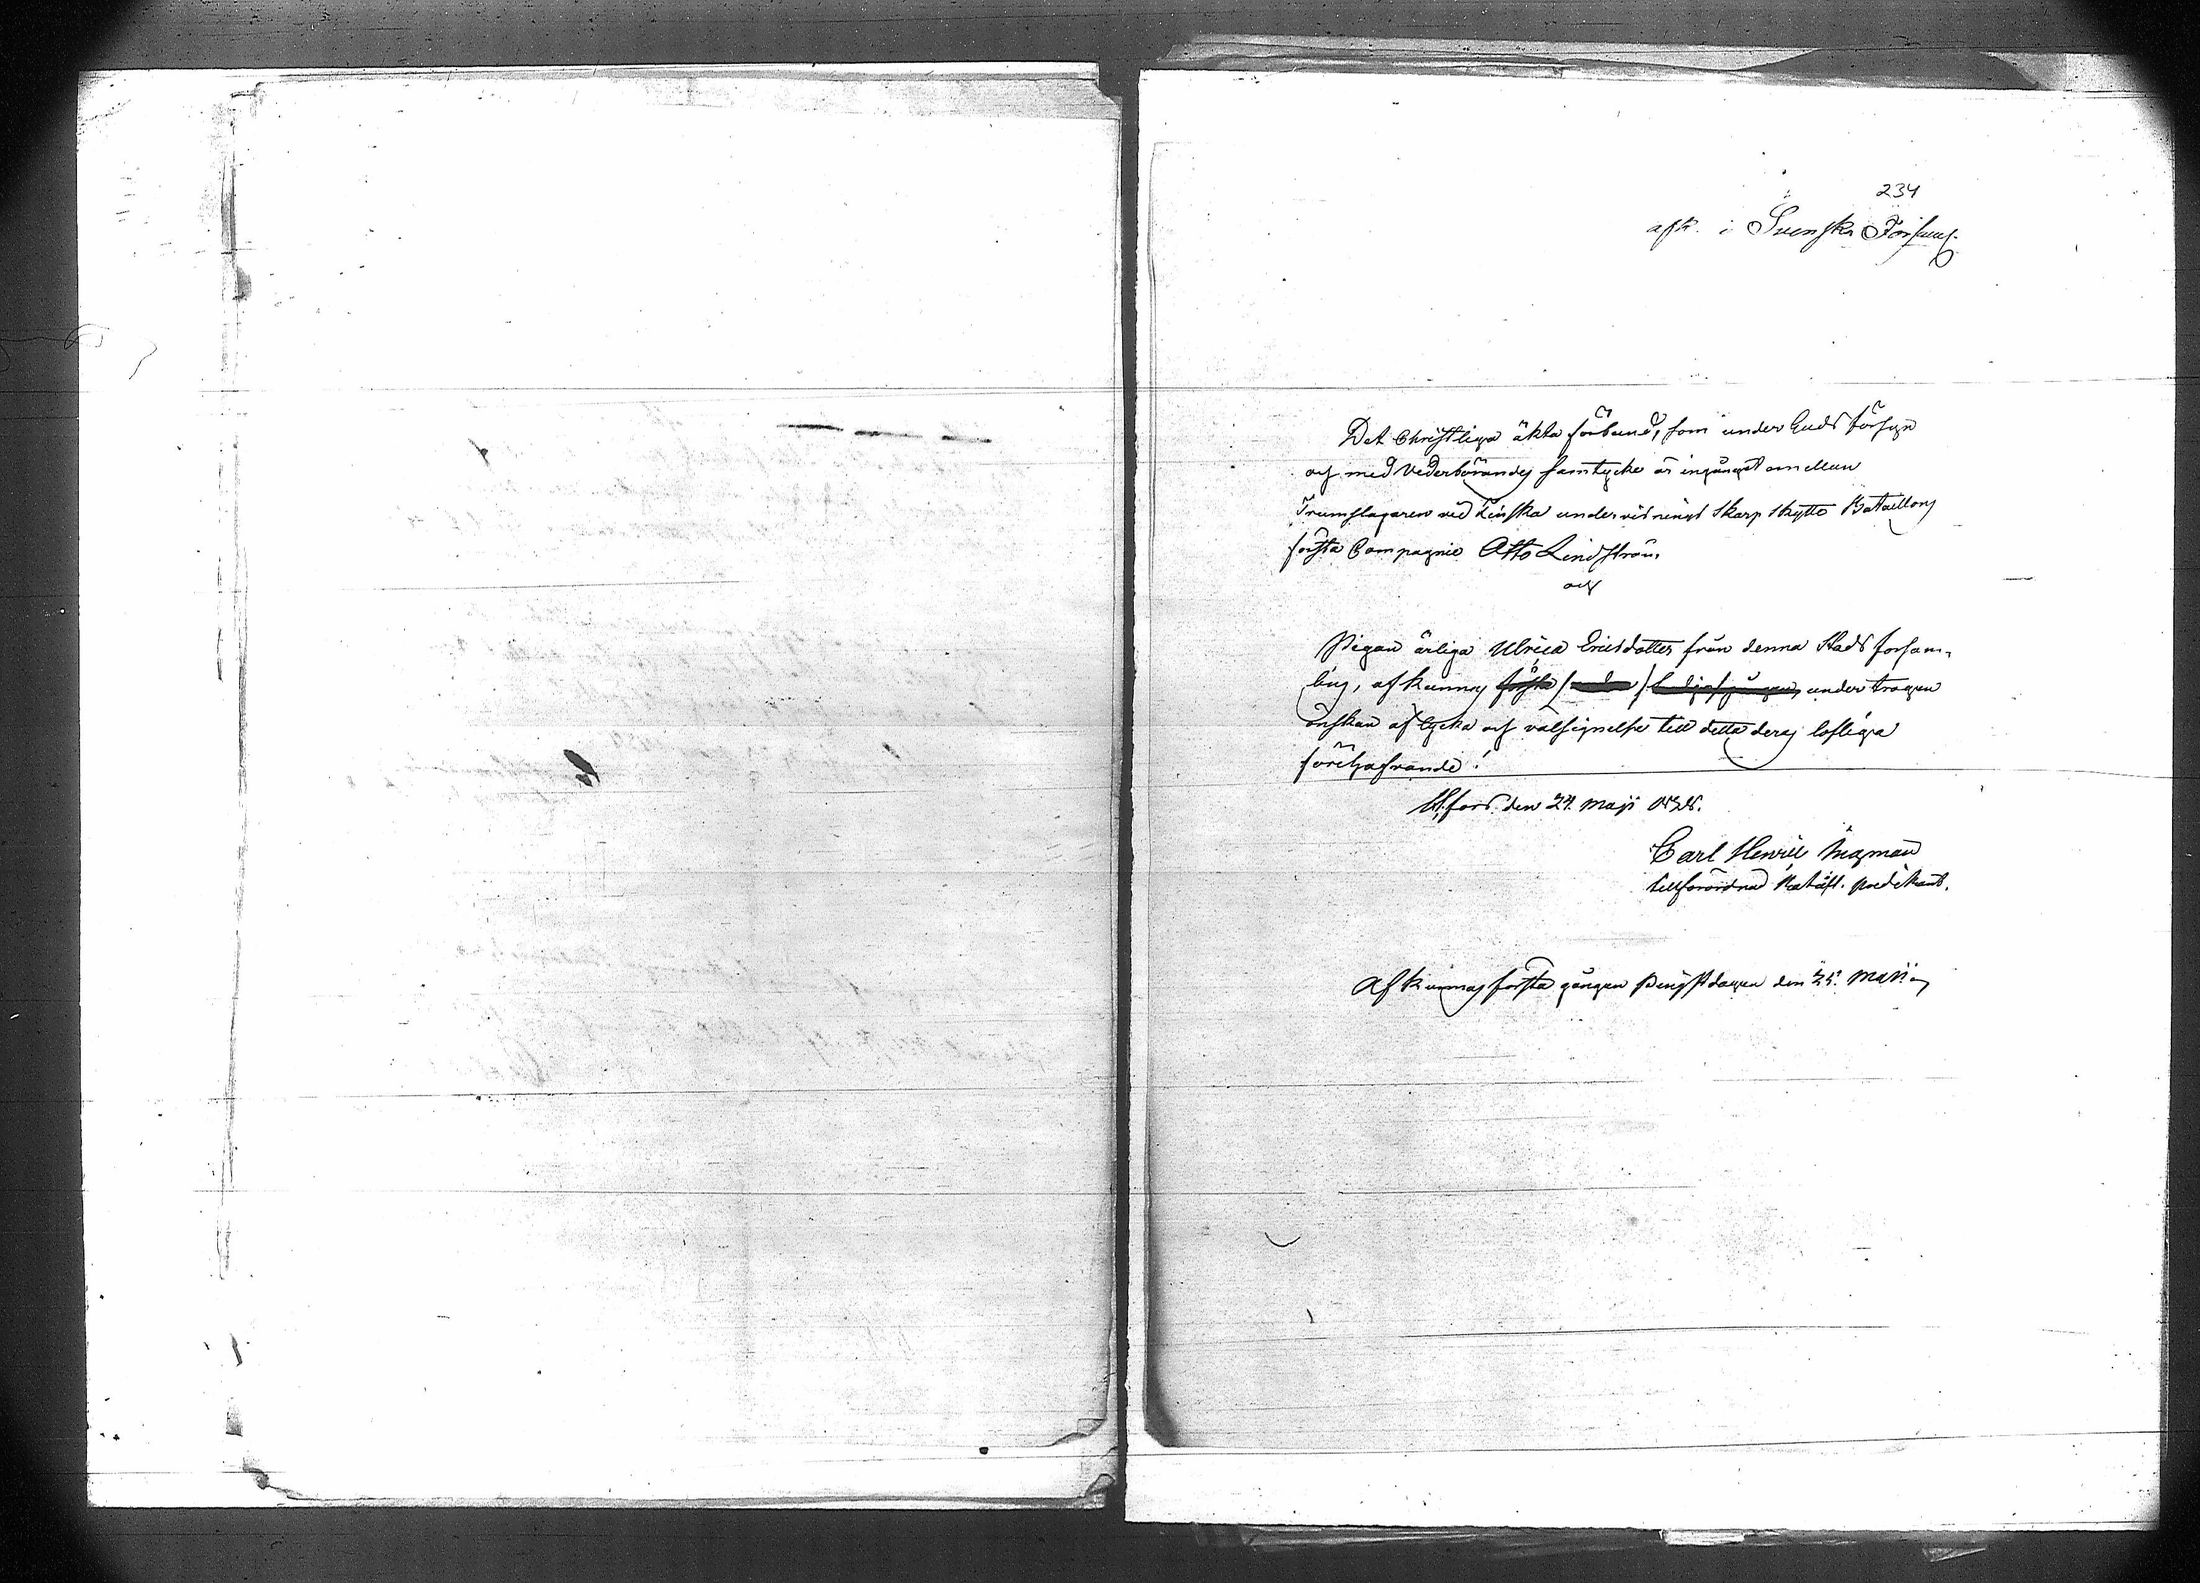 234
afk. i Svenska Församl.
Det Christliga äkta förbund, som under Guds försyn
och med Vederbörandes samtycke är ingånget emellan
Trumslagaren vid Finska undervisnings Skarp Skytte Bataillons
första Compagnie Otto Lindström,
och
Pigan ärliga Ulrica Ericsdotter från denna Stads försam-
ling, afkunnas första / andra / tredje gången, under trogen
önskan af lycka och välsignelse till detta deras lofliga
företagande!
H:fors den 24. Maji
Carl Henric Ingman
tillförordnad Batail. predikant.
Afkunnas första gången Pingstdagen den 25. Maji